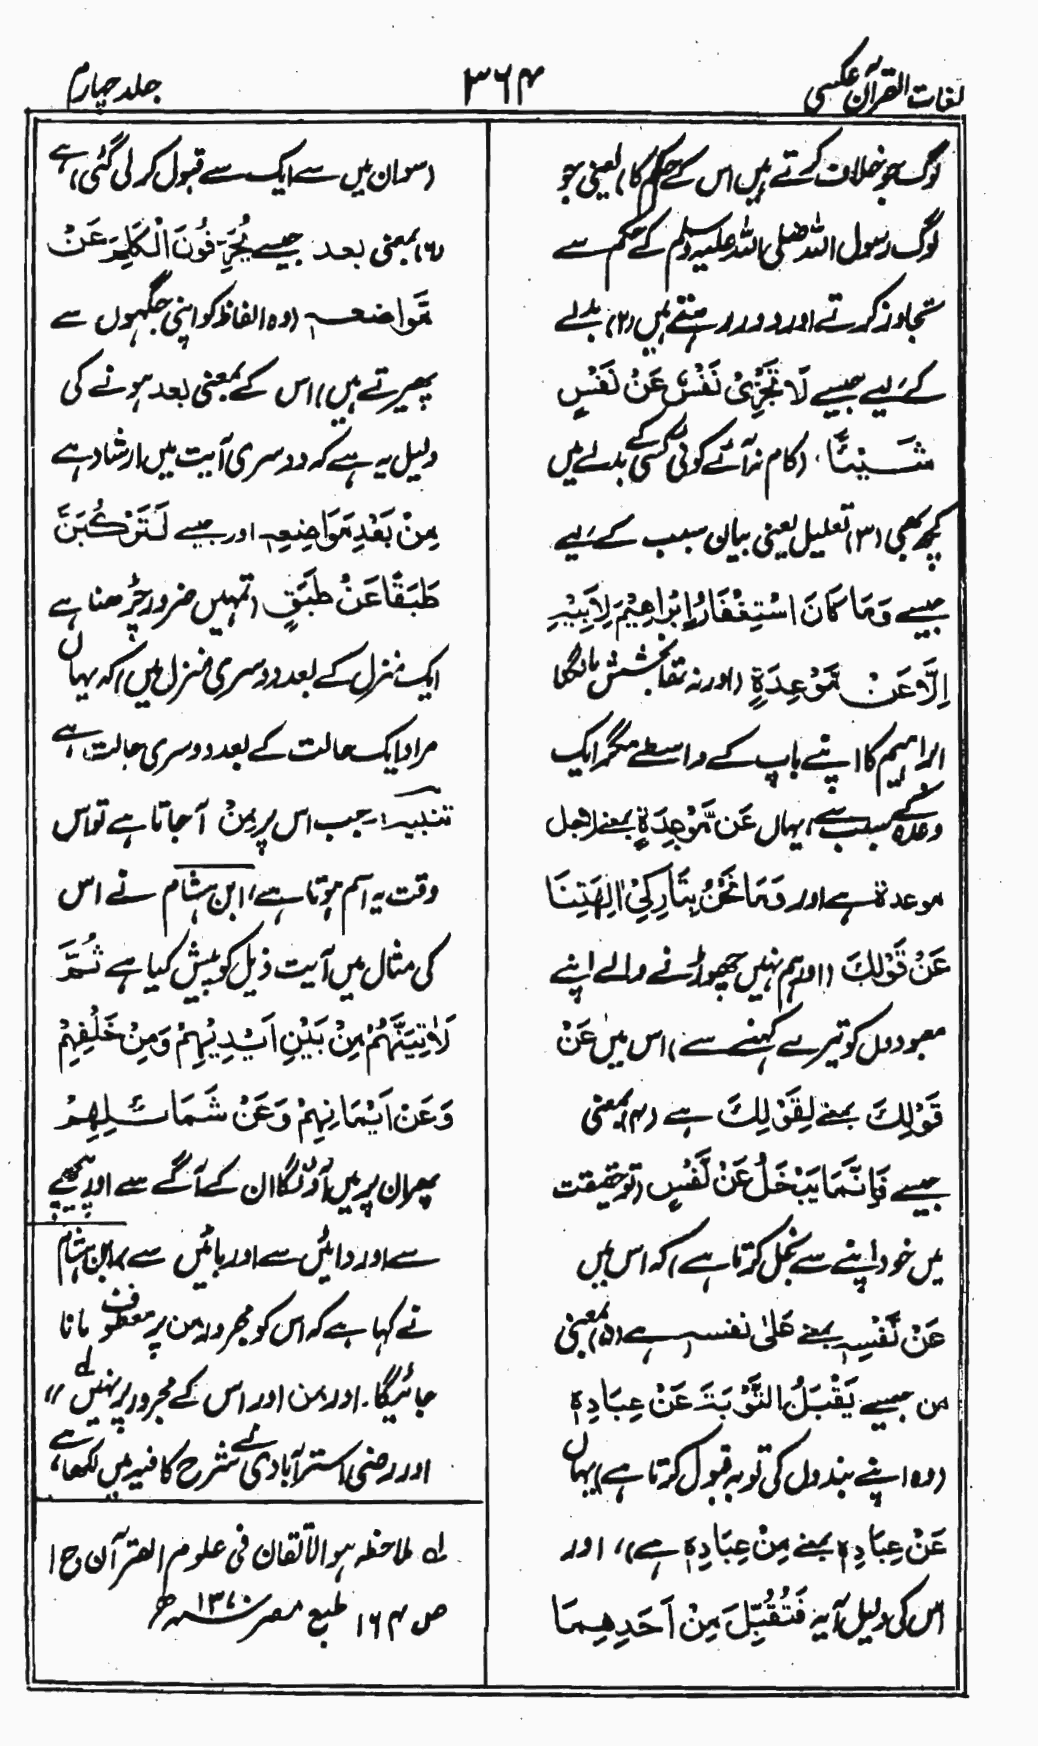 لغات القرآن عکسی
۳۶۴
جلد چہارم
لوگ جو خلاف کرتے ہیں اس کے حکم کا) یعنی جو
لوگ رسول اللہ صلی اللہ علیہ وسلم کے حکم سے
تجاوز کرتے اور دور رہتے ہیں (۲) بدلے
کے لیے جیسے لَا تَجْزِیْ نَفْسٌ عَنْ نَفْسٍ
شَیْئًا، (کام نہ آئے کوئی کسی کے بدلے میں
کچھ بھی (۳) تعلیل یعنی بیان سبب کے لیے
جیسے وَمَا کَانَ اسْتِغْفَارُ اِبْرَاهِیْمَ لِاَبِیْہِ
اِلَّا عَنْ مَّوْعِدَةٍ (اور نہ تھا بخشش مانگنا
ابراہیم کا اپنے باپ کے واسطے مگر ایک
وعدہ کے سبب سے) یہاں عَن مَّوْعِدَةٍ بمعنے لاجل
موعدة ہے اور وَمَا نَحْنُ بِتَارِکِیْ اٰلِهَتِنَا
عَنْ قَوْلِکَ (اور ہم نہیں چھوڑنے والے اپنے
معبودوں کو تیرے کہنے سے) اس میں عَنْ
قَوْلِکَ بمعنے لِقَوْلِکَ ہے (۴) بمعنی
جیسے فَاِنَّمَا یَبْخَلُ عَنْ نَّفْسِہٖ (تو حقیقت
میں خود اپنے سے بخل کرتا ہے) کہ اس میں
عَنْ نَّفْسِہٖ بمعنے عَلیٰ نفسہٖ ہے (۵) بمعنی
من جیسے یَقْبَلُ التَّوْبَةَ عَنْ عِبَادِہٖ
(وہ اپنے بندوں کی توبہ قبول کرتا ہے) یہاں
عَنْ عِبَادِہٖ بمعنے مِنْ عِبَادِہٖ ہے، اور
اس کی دلیل آیہ فَتُقُبِّلَ مِنْ اَحَدِهِمَا
(سو ان میں سے ایک سے قبول کر لی گئی) ہے
(۶) بمعنی بعد جیسے یُحَرِّفُوْنَ الْکَلِمَ عَنْ
مَّوَاضِعِہٖ (وہ الفاظ کو اپنی جگہوں سے
پھیرتے ہیں) اس کے بمعنی بعد ہونے کی
دلیل یہ ہے کہ دوسری آیت میں ارشاد ہے
مِنْ بَعْدِ مَوَاضِعِہٖ اور جیسے لَتَرْکَبُنَّ
طَبَقًا عَنْ طَبَقٍ (تمہیں ضرور چڑھنا ہے
ایک منزل کے بعد دوسری منزل میں) کہ یہاں
مراد ایک حالت کے بعد دوسری حالت ہے
تنبیہ:۔ جب اس پر مِنْ آ جاتا ہے تو اس
وقت یہ اسم ہوتا ہے، ابن ہشام نے اس
کی مثال میں آیت ذیل کو پیش کیا ہے ثُمَّ
لَاٰتِیَنَّهُمْ مِنْ بَیْنِ اَیْدِیْهِمْ وَمِنْ خَلْفِهِمْ
وَعَنْ اَیْمَانِهِمْ وَعَنْ شَمَائِلِهِمْ
پھر ان پر میں آؤنگا ان کے آگے سے اور پیچھے
سے اور دائیں سے اور بائیں سے) ابن ہشام
نے کہا ہے کہ اس کو مجرور من پر معطوف مانا
جائیگا۔ اور من اور اس کے مجرور پر نہیں لہ"
اور رضی استرآبادی نے شرح کافیہ میں لکھا ہے
لہ ملاحظہ ہو الاتقان فی علوم القرآن ج ۱
ص ۱۶۴ طبع مصر ۱۳۷۰ھ